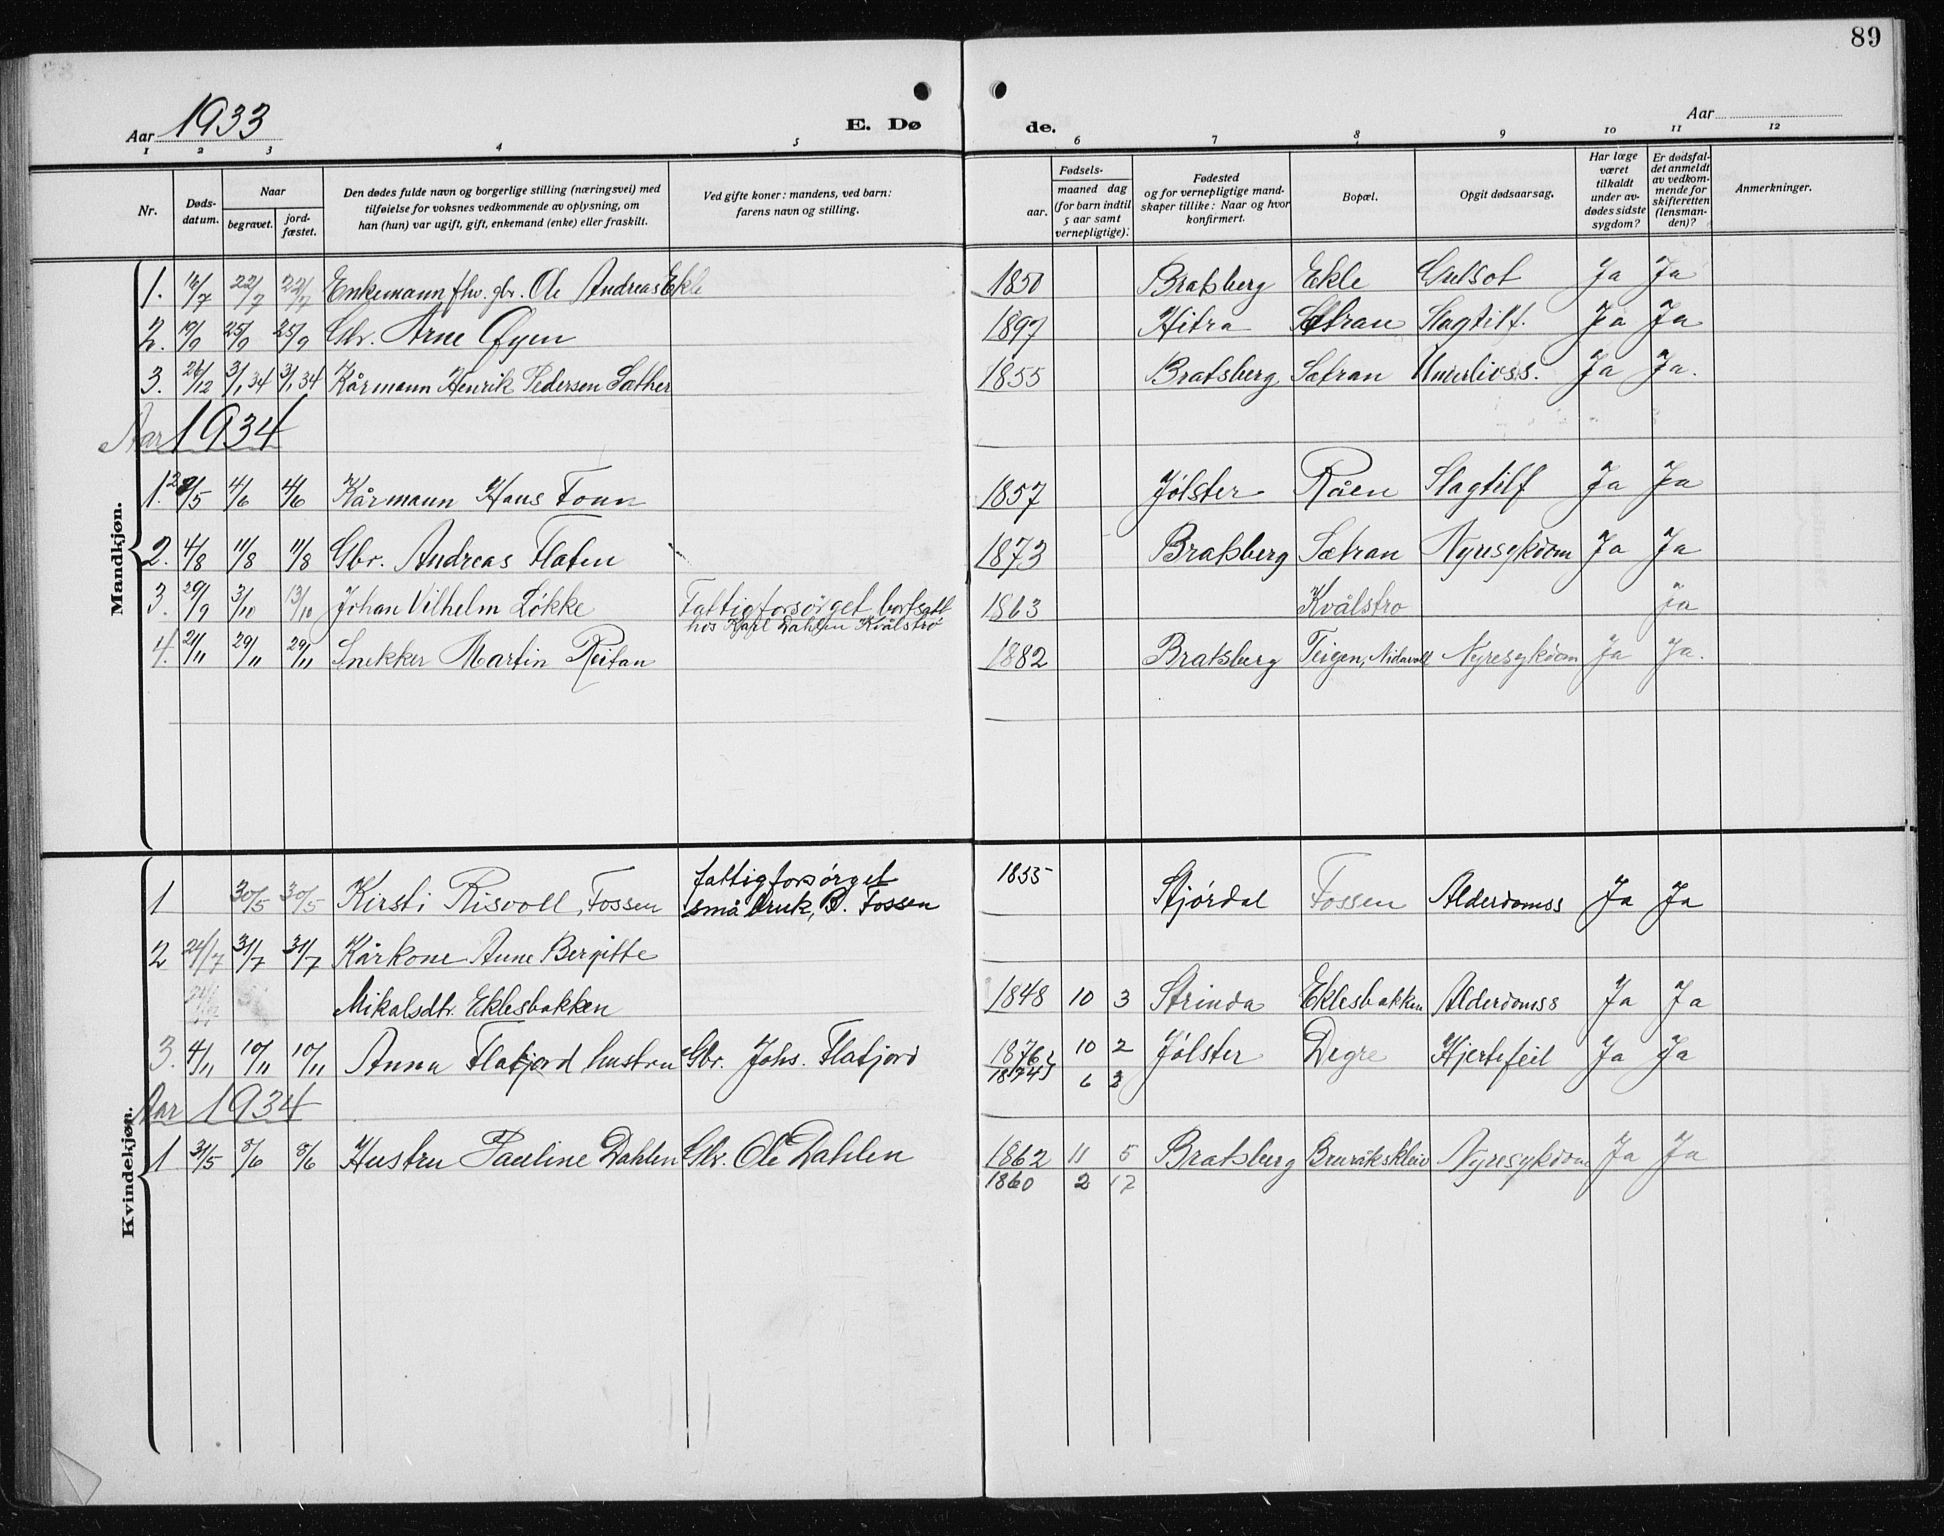 89
Aar 1933 E. Dø de. Aar
1 2 3 4 5 6 7 8 9 10 11 12
Nr. Døds-datum. Naar begravet. jord-fæstet. Den dødes fulde navn og borgerlige stilling (næringsvei) med tilføielse for voksnes vedkommende av oplysning, om han (hun) var ugift, gift, enkemand (enke) eller fraskilt. Ved gifte koner: mandens, ved barn: farens navn og stilling. Fødsels- aar. maaned dag (for barn indtil 5 aar samt vernepligtige). Fødested og for vernepligtige mand-skaper tillike: Naar og hvor konfirmert. Bopæl. Opgit dødsaarsag. Har læge været tilkaldt under av-dødes sidste sygdom? Er dødsfal-det anmeldt av vedkom-mende for skifteretten (lensman-den)? Anmerkninger.
Mandkjøn.
1. 16/7 22/7 22/7 Enkemann fhv. gbr. Ole Andreas Ekle 1850 Bratsberg Ekle Gulsot Ja Ja
2. 19/9 25/9 25/9 Gbr. Arne Øyen 1897 Hitra Sætran Slagtilf. Ja Ja
3. 26/12 3/1 34 3/1 34 Kårmann Henrik Pedersen Sæther 1855 Bratsberg Sætran Ja Ja.
Aar 1934
1. 28/5 4/6 4/6 Kårmann Hans Fonn 1857 Jølster Råen Slagtilf Ja Ja
2. 4/8 11/8 11/8 Gbr. Andreas Flaten 1873 Bratsberg Sætran Nyresykdom Ja Ja
3. 29/9 3/10 13/10 Johan Vilhelm Løkke Fattigforsørget bortsatt 1863 Kvålstrø ja
hos Karl Dahlen Kvålstrø
4. 21/11 29/11 29/11 Snekker Martin Reitan 1882 Bratsberg Teigen, Nidavoll Nyresykdom Ja Ja.
Kvindekjøn.
fattigforsørget 1855
1 30/5 30/5 Kirsti Risvoll, Fossen småbruk, B. Fossen Stjørdal Fossen Alderdomss Ja Ja
2 24/7 31/7 31/7 Kårkone Anne Bergitte
Mikalsdtr. Eklesbakken 1848 10 3 Strinda Eklesbakken Alderdomss Ja Ja
3. 4/11 10/11 10/11 Anna Flatjord hustru Gbr. Johs. Flatjord 1876 10 2 Jølster Degre Hjertefeil Ja Ja
1874 6 2
Aar 1934
1 31/5 8/6 8/6 Hustru Pauline Dahlen Gbr. Ole Dahlen 1862 11 5 Bratsberg Nyresykdom Ja Ja
1860 2 17